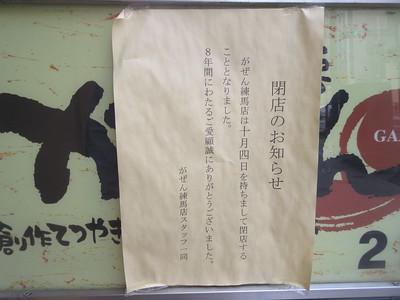 閉店のお知らせ
がぜん練馬店は十月四日を持ちまして閉店する
こととなりました。
8年間にわたるご愛顧誠にありがとうございました。
がぜん練馬店スタッフ一同
創作てつやき
GA
2